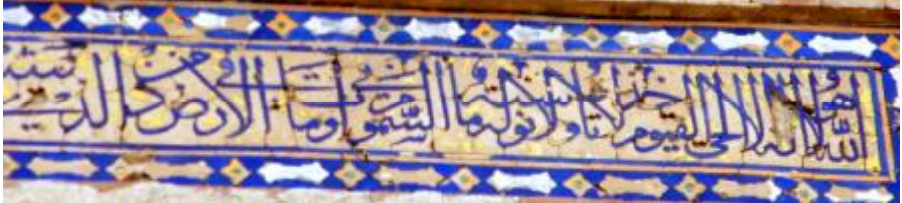 الله لا اله الا هو الحی القیوم لا تاخذه سنة ولا نوم له ما فی السموات وما فی الارض من ذا الذی